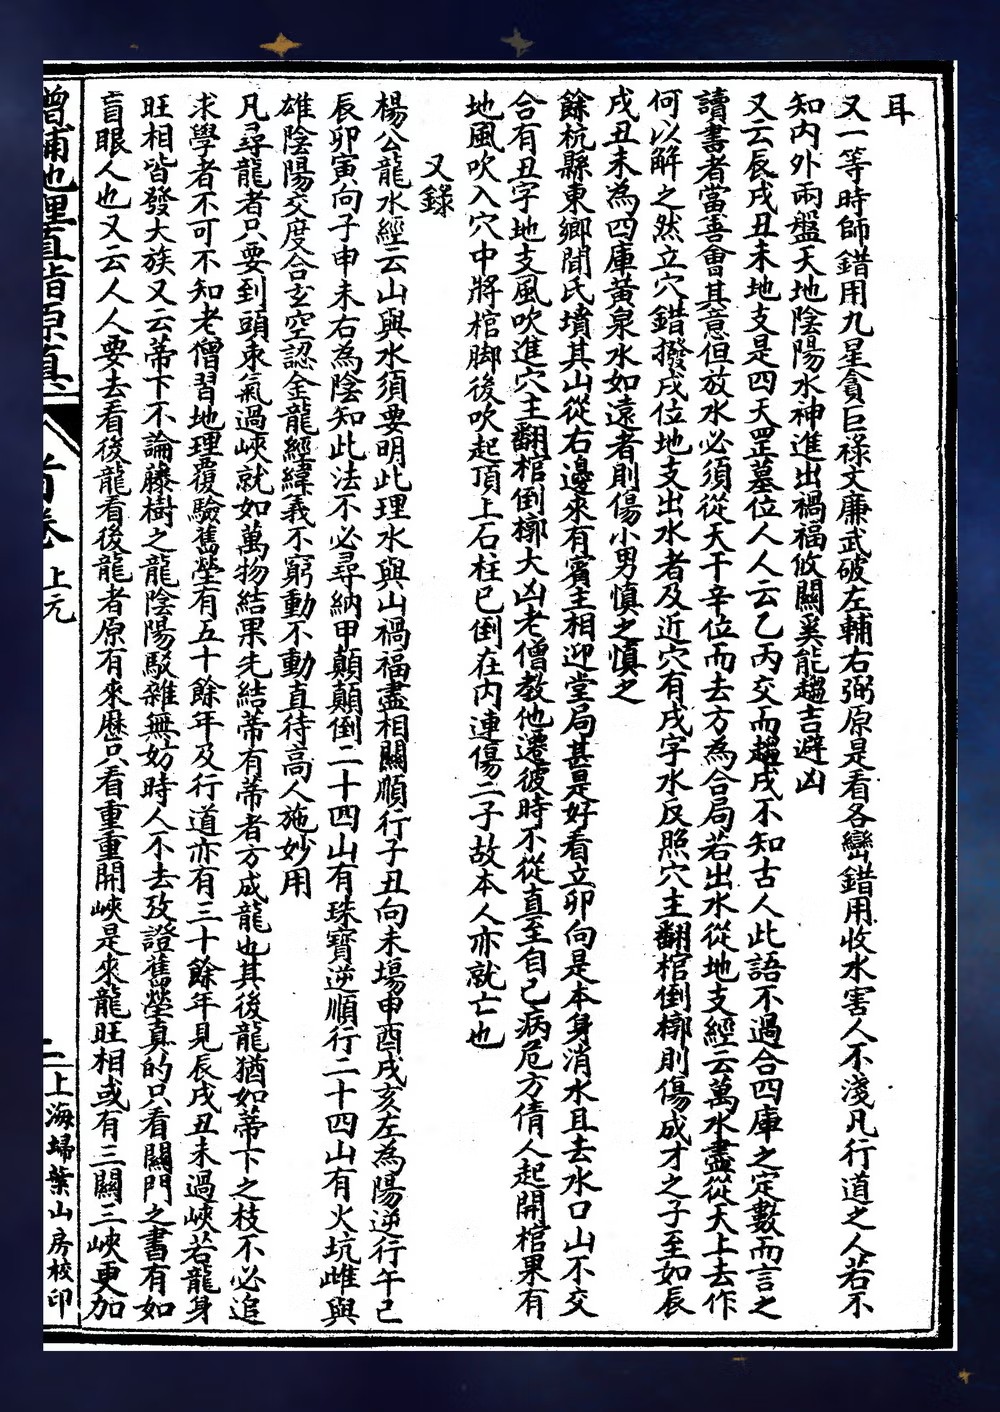 耳
又一等時師錯用九星貪巨祿文廉武破左輔右弼原是看各巒錯用收水害人不淺凡行道之人若不
知內外兩盤天地陰陽水神進出禍福攸關奚能趨吉避凶
又云辰戌丑未地支是四天罡墓位人人云乙丙交而趨戌不知古人此語不過合四庫之定數而言之
讀書者當善會其意但放水必須從天干辛位而去方為合局若出水從地支經云萬水盡從天上去作
何以解之然立穴錯撥戌位地支出水者及近穴有戌字水反照穴主翻棺倒槨則傷成才之子至如辰
戌丑未為四庫黃泉水如遠者則傷小男慎之慎之
餘杭縣東鄉閒氏墳其山從右邊來有賓主相迎堂局甚是好看立卯向是本身消水且去水口山不交
合有丑字地支風吹進穴主翻棺倒槨大凶老僧教他遷彼時不從直至自己病危方倩人起開棺果有
地風吹入穴中將棺脚後吹起頂上石柱已倒在內連傷二子故本人亦就亡也
又錄
楊公龍水經云山與水須要明此理水與山禍福盡相關順行子丑向未塲申酉戌亥左為陽逆行午巳
辰卯寅向子申未右為陰知此法不必尋納甲顛顛倒二十四山有珠寶逆順行二十四山有火坑雌與
雄陰陽交度合玄空認金龍經緯義不窮動不動直待高人施妙用
凡尋龍者只要到頭束氣過峽就如萬物結果先結蒂有蒂者方成龍也其後龍猶如蒂下之枝不必追
求學者不可不知老僧習地理覆驗舊塋有五十餘年及行道亦有三十餘年見辰戌丑未過峽若龍身
旺相皆發大族又云蒂下不論藤樹之龍陰陽駁雜無妨時人不去攷證舊塋真的只看關門之書有如
盲眼人也又云人人要去看後龍看後龍者原有來歷只看重重開峽是來龍旺相或有三關三峽更加
增補地理直指原真
首卷 上元
二
上海埽葉山房校印